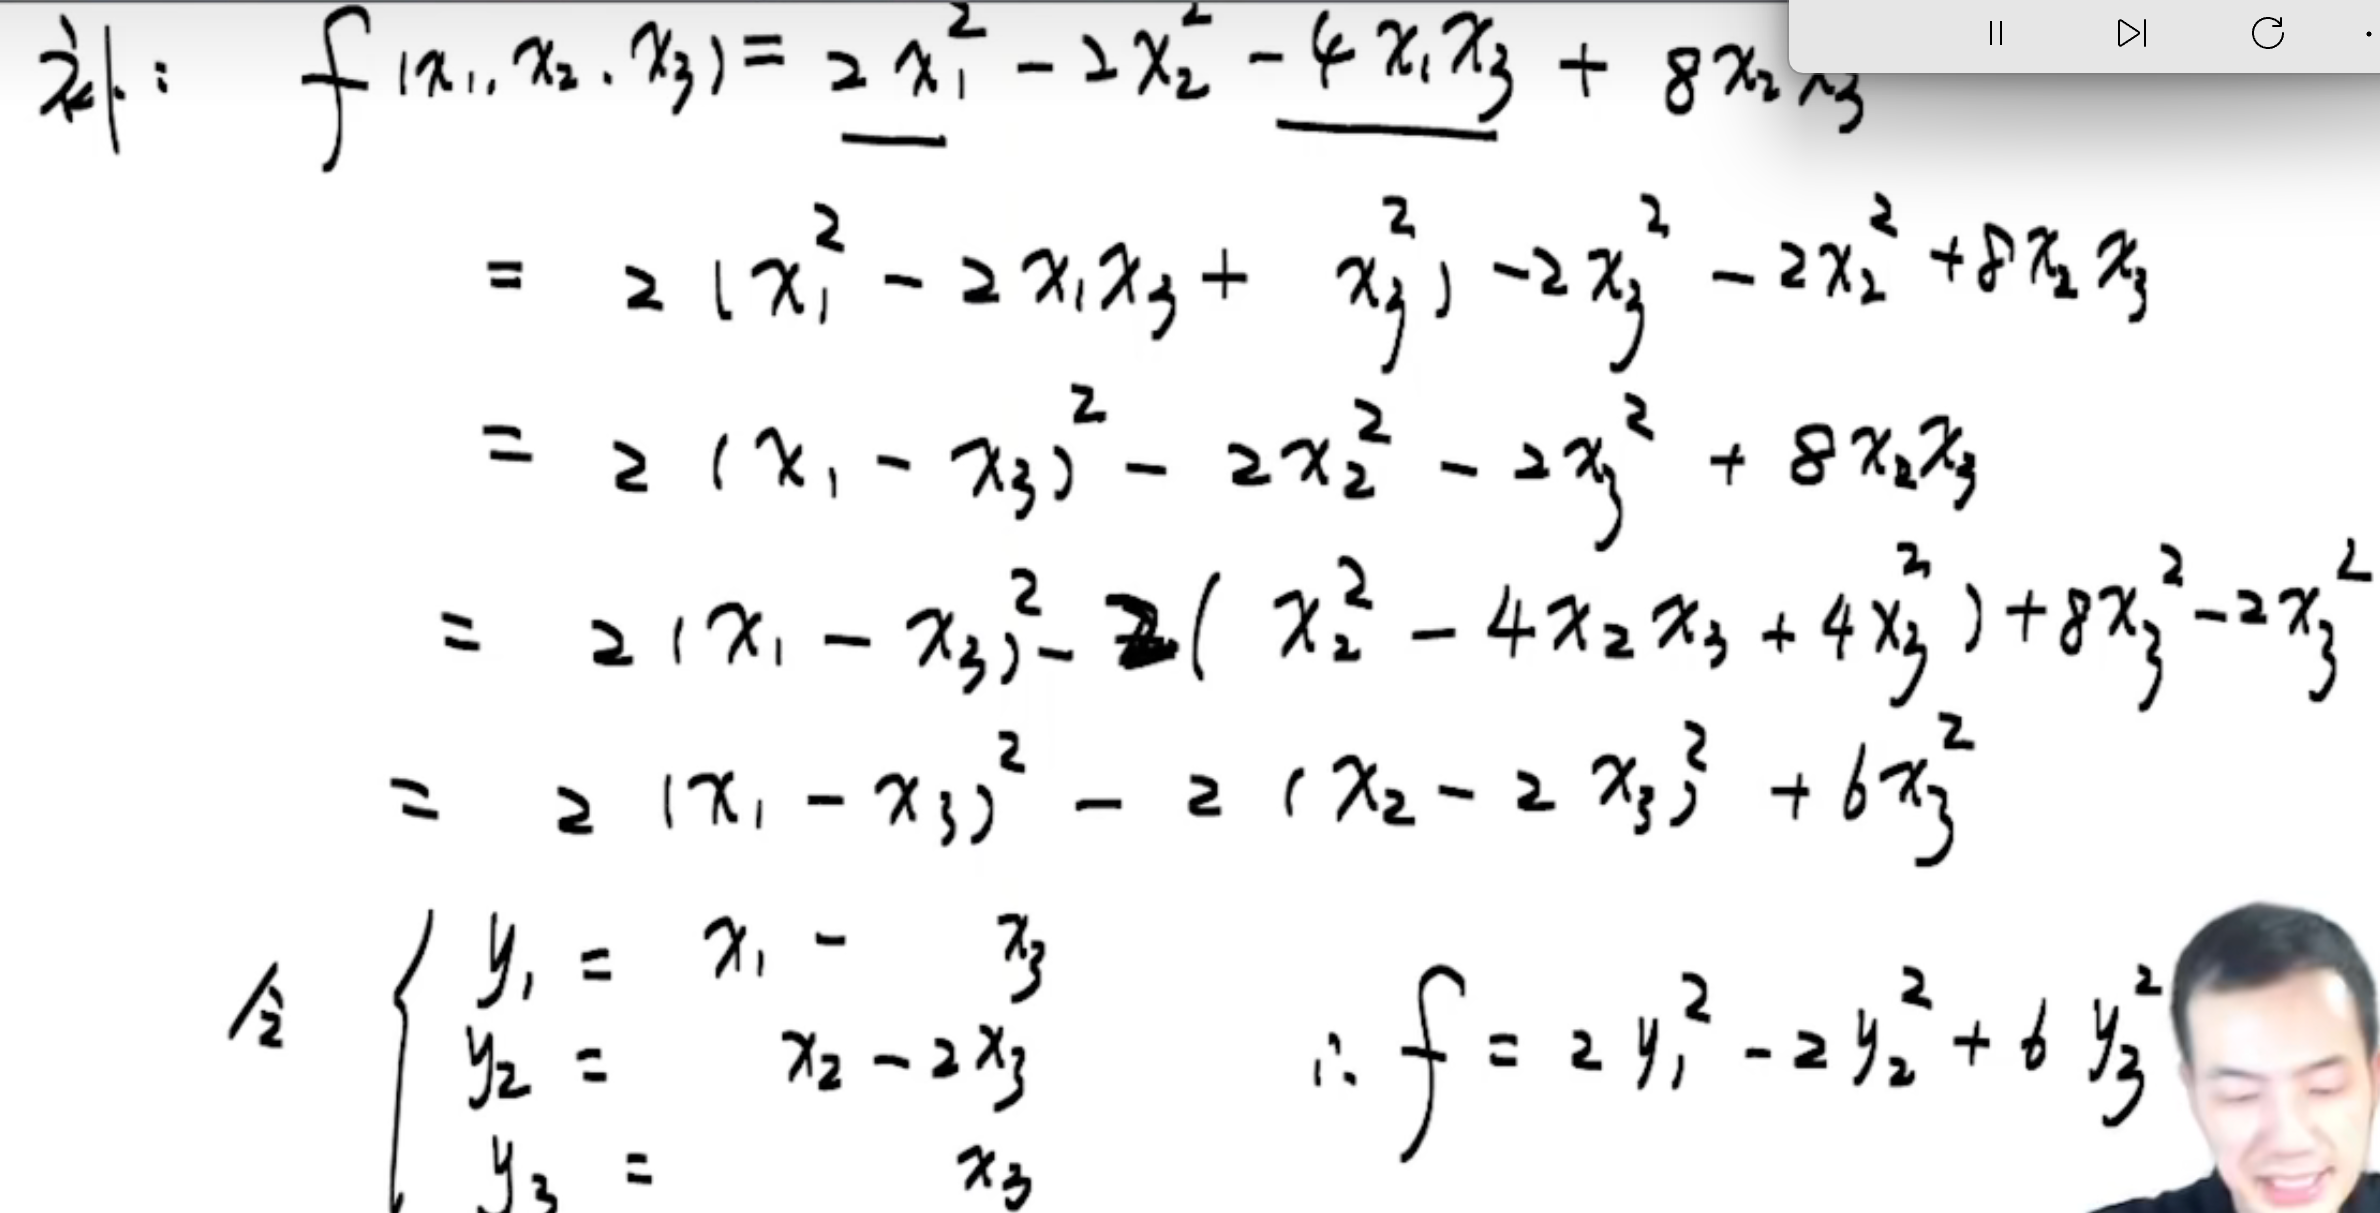 初: f(x₁, x₂, x₃) = 2x₁² - 2x₂² - 4x₁x₃ + 8x₂x₃
= 2(x₁² - 2x₁x₃ + x₃²) - 2x₃² - 2x₂² + 8x₂x₃
= 2(x₁ - x₃)² - 2x₂² - 2x₃² + 8x₂x₃
= 2(x₁ - x₃)² - 2(x₂² - 4x₂x₃ + 4x₃²) + 8x₃² - 2x₃²
= 2(x₁ - x₃)² - 2(x₂ - 2x₃)² + 6x₃²
令 { y₁ = x₁ - x₃
y₂ = x₂ - 2x₃
y₃ = x₃
∴ f = 2y₁² - 2y₂² + 6y₃²